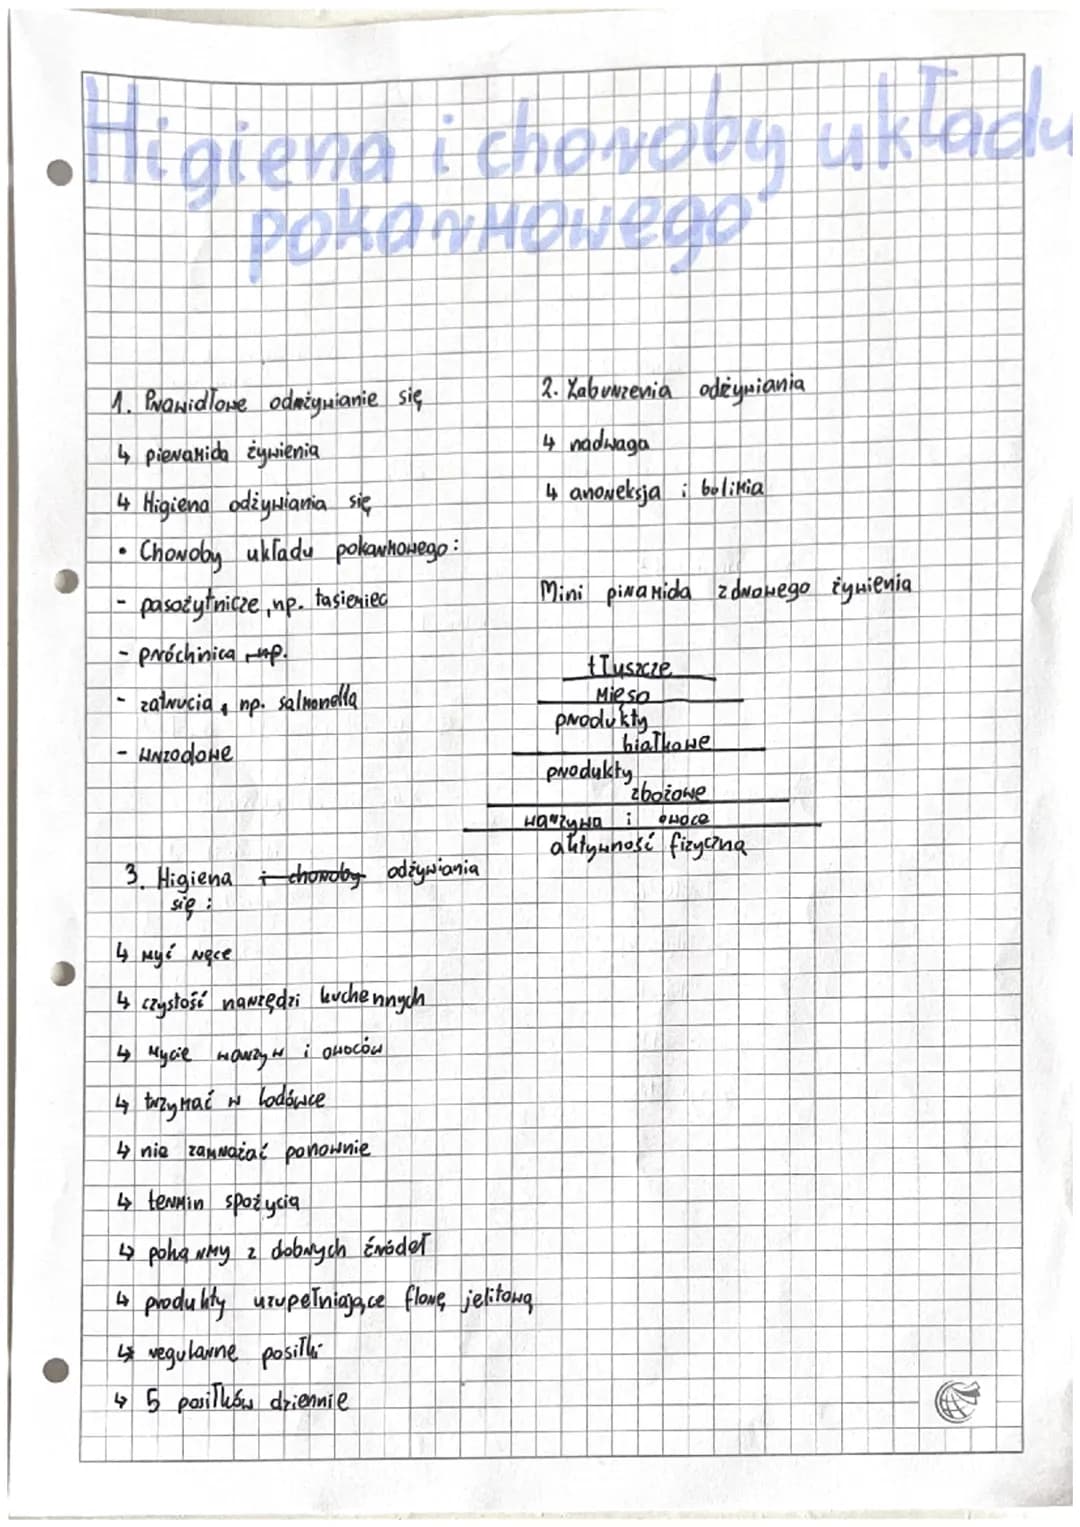 Higiena i choroby układu
pokarmowego
1. Prawidłowe odrżywianie się
↳ pieramida żywienia
↳ Higiena odżywiania się
• Choroby układu pokarmowego:
- pasożytnicze, np. tasiemiec
- próchinica, np.
- zatrucia, np. salmonella
- wrzodowe
2. Zaburzenia odżywiania
↳ nadwaga
↳ anoreksja i bulimia
Mini piramida zdrowego żywienia
tłuszcze
mięso
produkty
białkowe
produkty
zbożowe
warzywa i owoce
aktywność fizyczna
3. Higiena i choroby odżywiania
się:
↳ myć ręce
↳ czystość narzędzi kuchennych
↳ mycie warzyw i owoców
↳ trzymać w lodówce
↳ nie zamrażać ponownie
↳ termin spożycia
↳ pokarmy z dobrych źródeł
↳ produkty uzupełniające florę jelitową
↳ regularne posiłki
↳ 5 posiłków dziennie